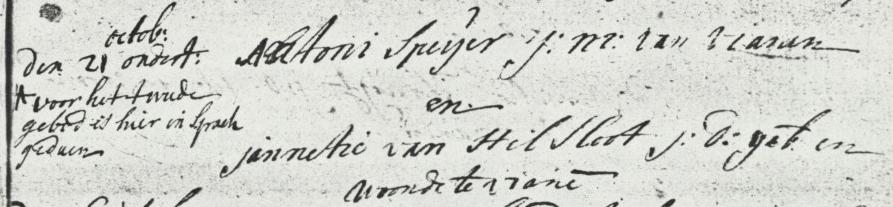 octob:
den 21 ondert:
voor het twede
gebed is hier in Spraek
gedaen
Antoni Speijer J: m: van vianan
en
jannetie van Stel Sloot j: d: geb: en
woonde te viane